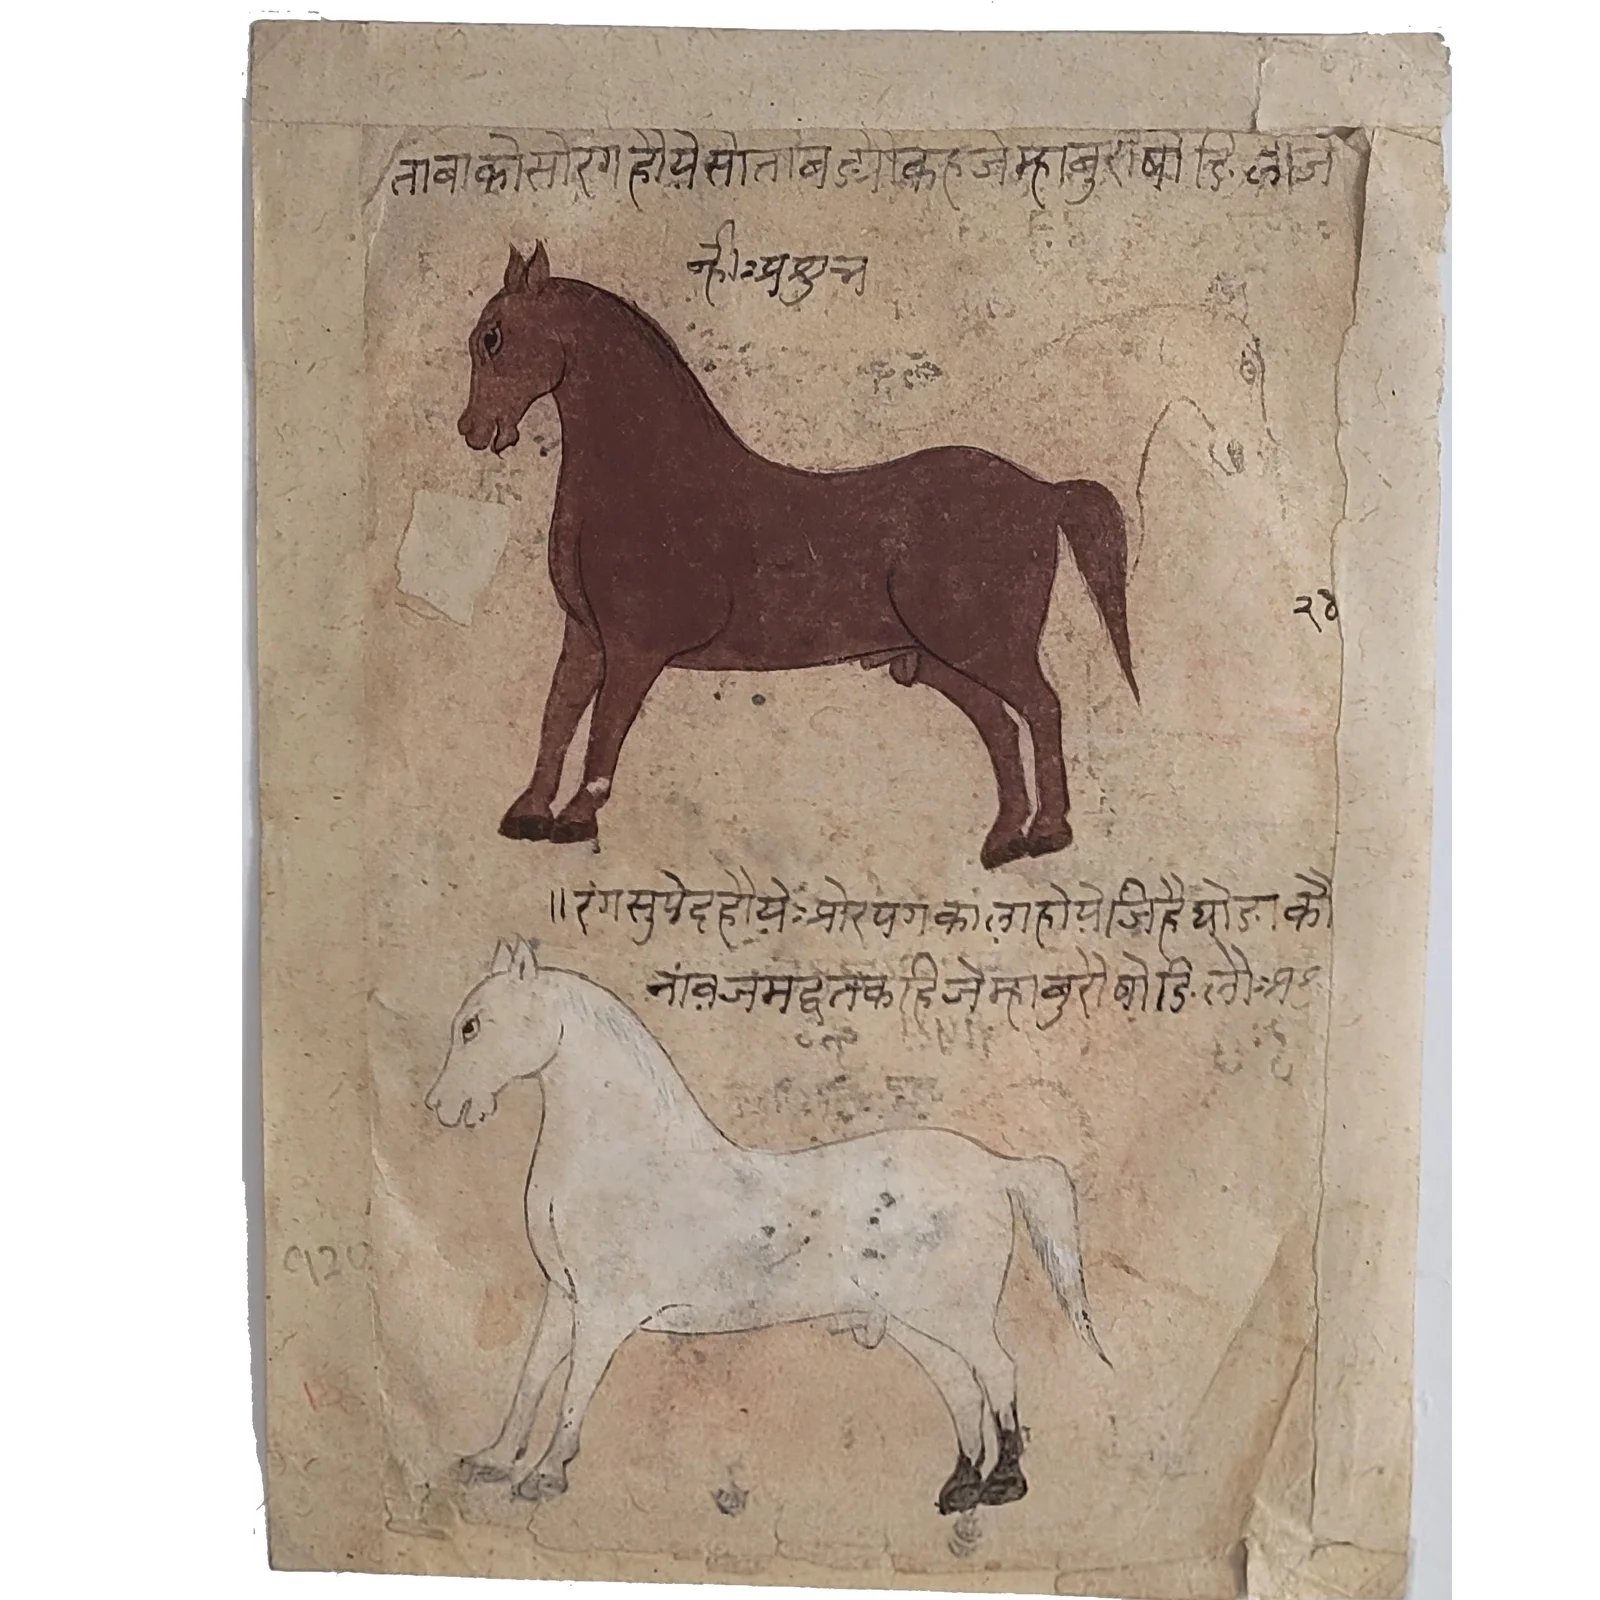 ताबाकोसोरंगहौयेसोताबडयौकहजेम्हाबुरीषोडिलीज
नहीःप्रशुच
२४
॥रंगसुपेदहौयेःओरपगकालाहोयेजिहैघोडाकौ
नांवजमदूतकहिजेम्हाबुरौषोडिलौः
१२०